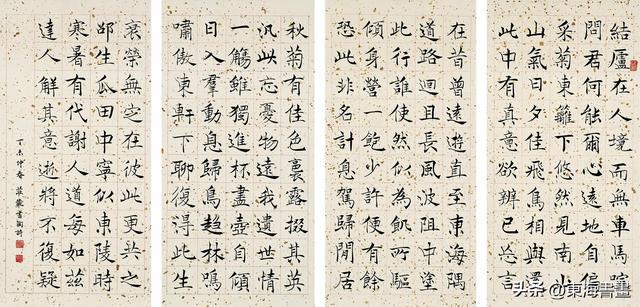 結廬在人境而無車馬喧
問君何能爾心遠地自偏
采菊東籬下悠然見南山
山氣日夕佳飛鳥相與還
此中有真意欲辨已忘言
在昔曾遠遊直至東海隅
道路迴且長風波阻中塗
此行誰使然似為飢所驅
傾身營一飽少許便有餘
恐此非名計息駕歸閒居
秋菊有佳色裛露掇其英
汎此忘憂物遠我遺世情
一觴雖獨進杯盡壺自傾
日入羣動息歸鳥趨林鳴
嘯傲東軒下聊復得此生
衰榮無定在彼此更共之
邵生瓜田中寧似東陵時
寒暑有代謝人道每如茲
達人解其意逝將不復疑
丁未仲春 莊嚴書陶詩
头条@東海書畫